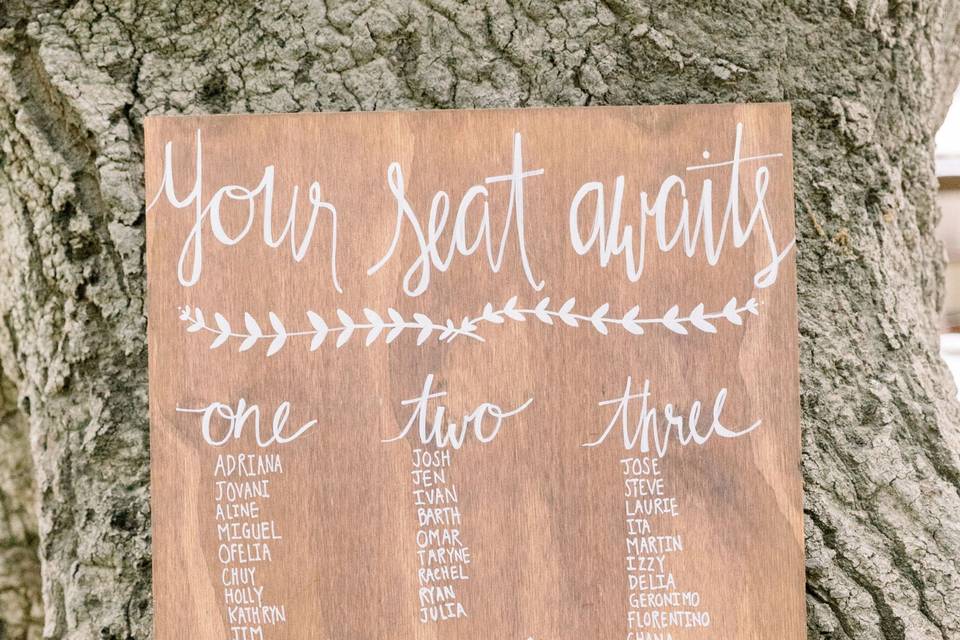 Your seat awaits
one
ADRIANA
JOVANI
ALINE
MIGUEL
OFELIA
CHUY
HOLLY
KATHRYN
TIM
two
JOSH
JEN
IVAN
BARTH
OMAR
TARYNE
RACHEL
RYAN
JULIA
three
JOSE
STEVE
LAURIE
ITA
MARTIN
IZZY
DELIA
GERONIMO
FLORENTINO